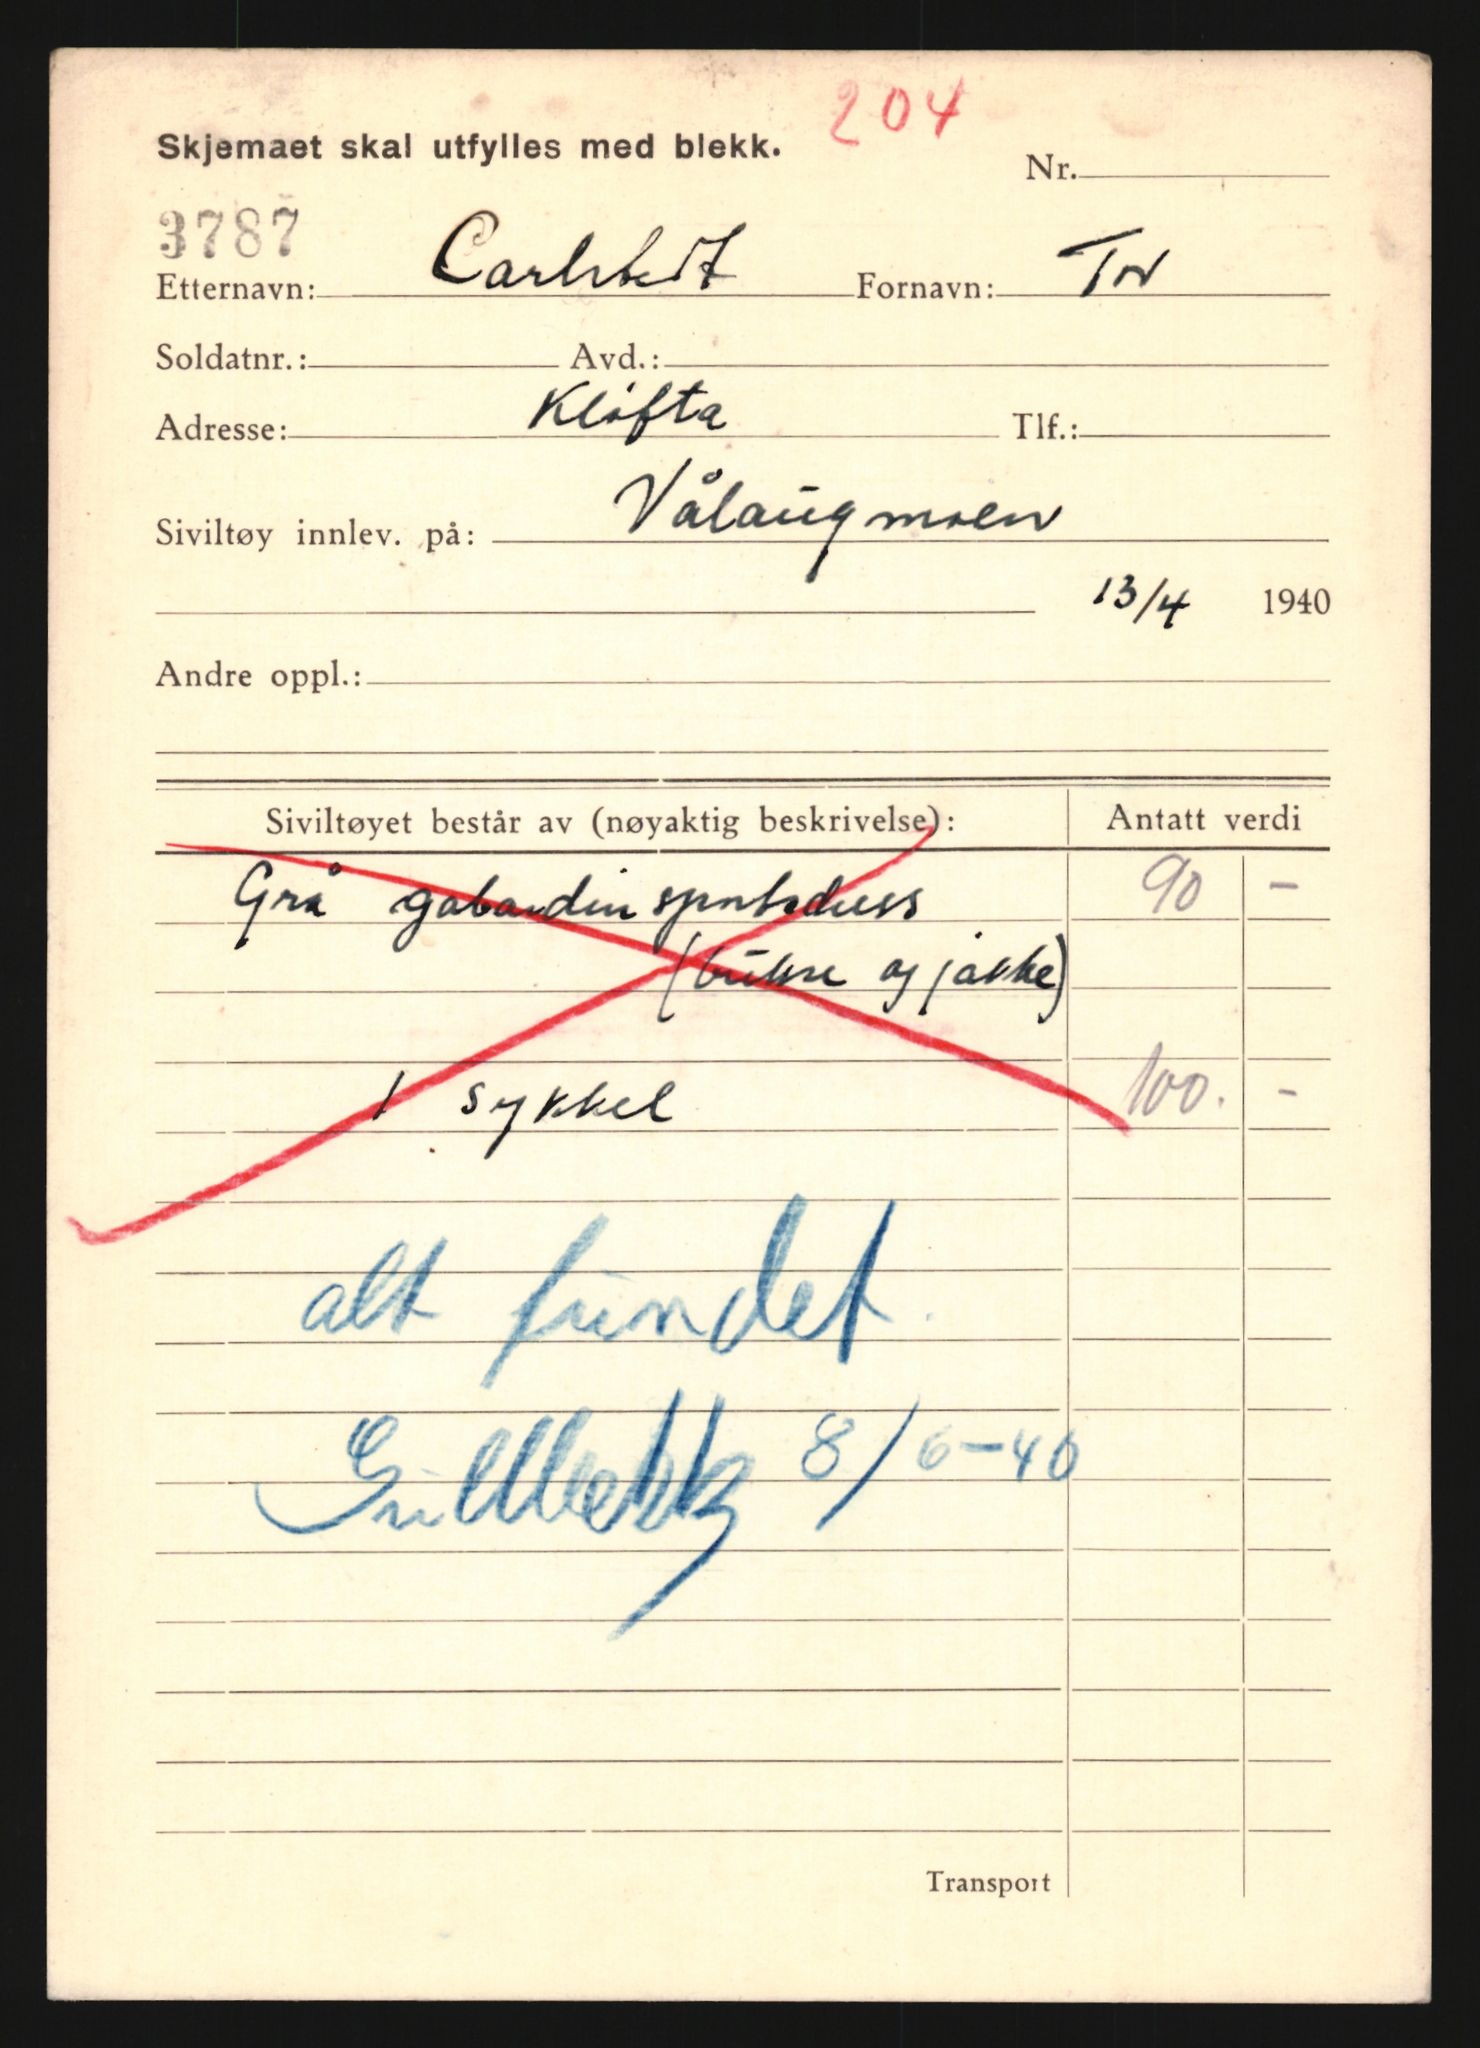 204
Skjemaet skal utfylles med blekk.
Nr.
3787
Etternavn: Carlstedt Fornavn:
Soldatnr.: Avd.:
Adresse: Kløfta Tlf.:
Siviltøy innlev. på: Vålaugmoen
13/4 1940
Andre oppl.:
Siviltøyet består av (nøyaktig beskrivelse): Antatt verdi
Grå gabardin sportsdress 90 -
(bukse og jakke)
1 sykkel 100. -
alt fundet.
8/6-40
Transport